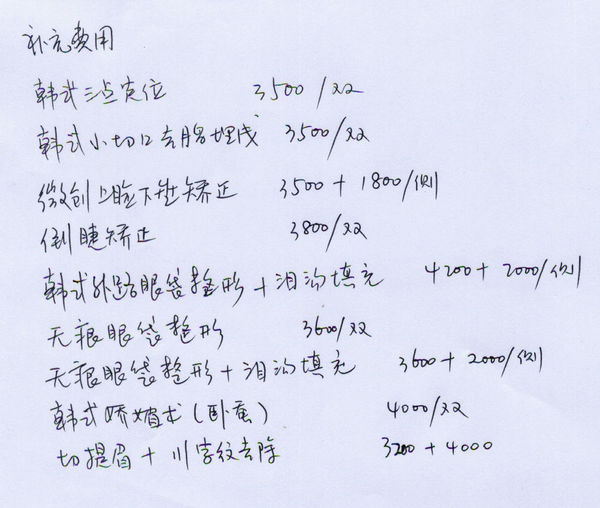 补充费用
韩式三点定位 3500/双
韩式小切口去脂埋线 3500/双
微创上睑下垂矫正 3500+1800/侧
倒睫矫正 3800/双
韩式外路眼袋整形+泪沟填充 4200+2000/侧
无痕眼袋整形 3600/双
无痕眼袋整形+泪沟填充 3600+2000/侧
韩式娇媚术(卧蚕) 4000/双
切提眉+川字纹去除 3200+4000